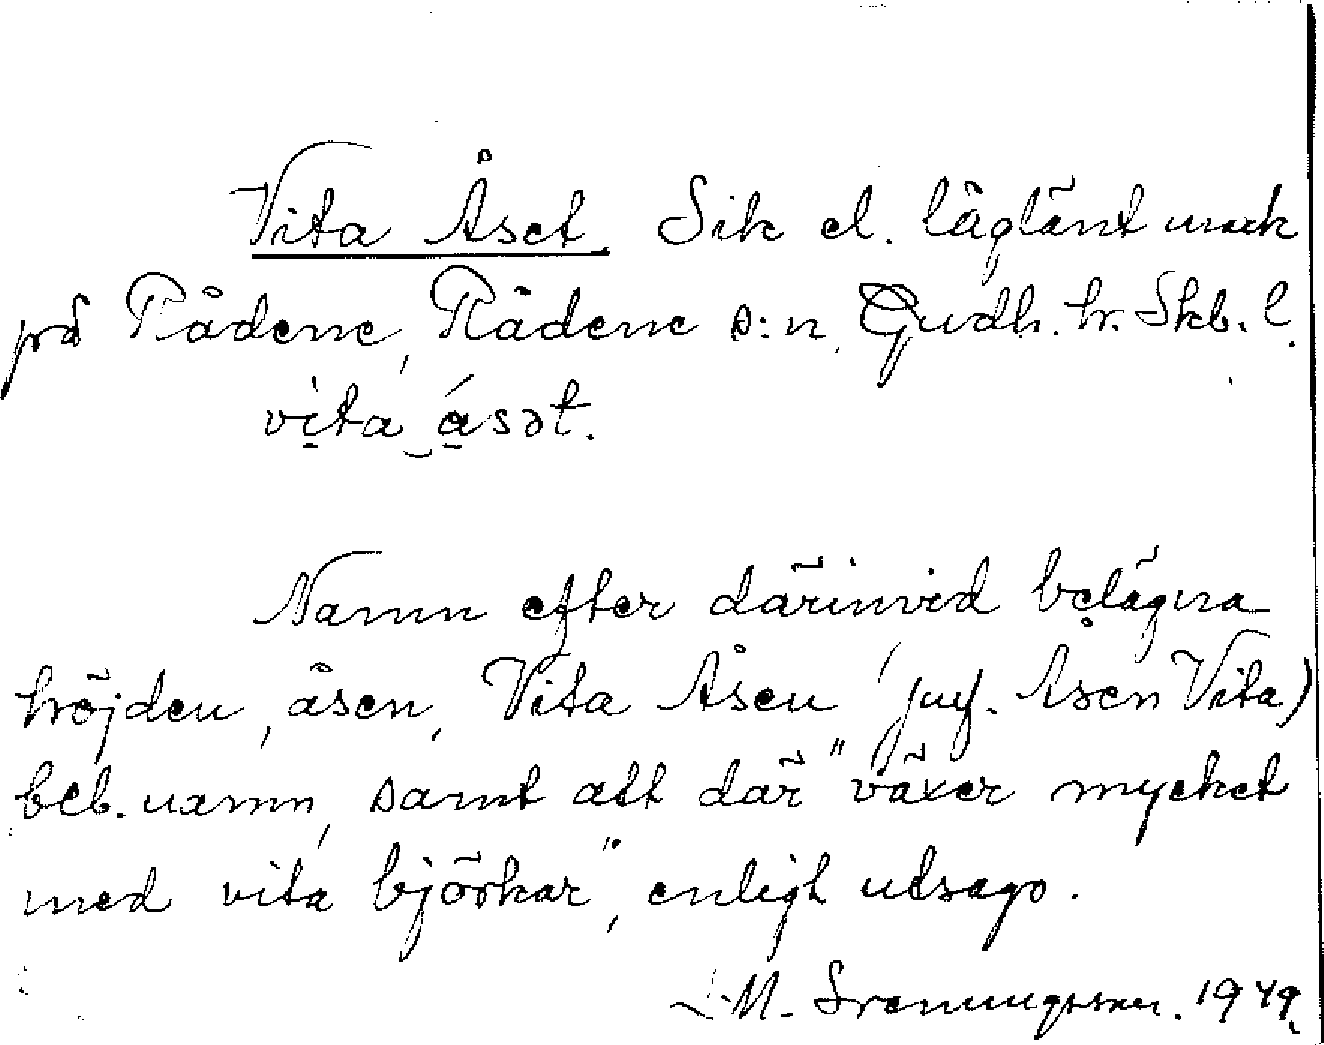 Vita Åset. Sik el. låglänt mark
på Rådene, Rådene s:n, Gudh. hr. Skb. l.
vita ásət.
Namn efter därinvid belägna
höjden, åsen, Vita Åsen (jmf. Åsen Vita)
beb. namn, samt att där "växer mycket
med vita björkar", enligt utsago.
L. M. Svenungsson. 1949.